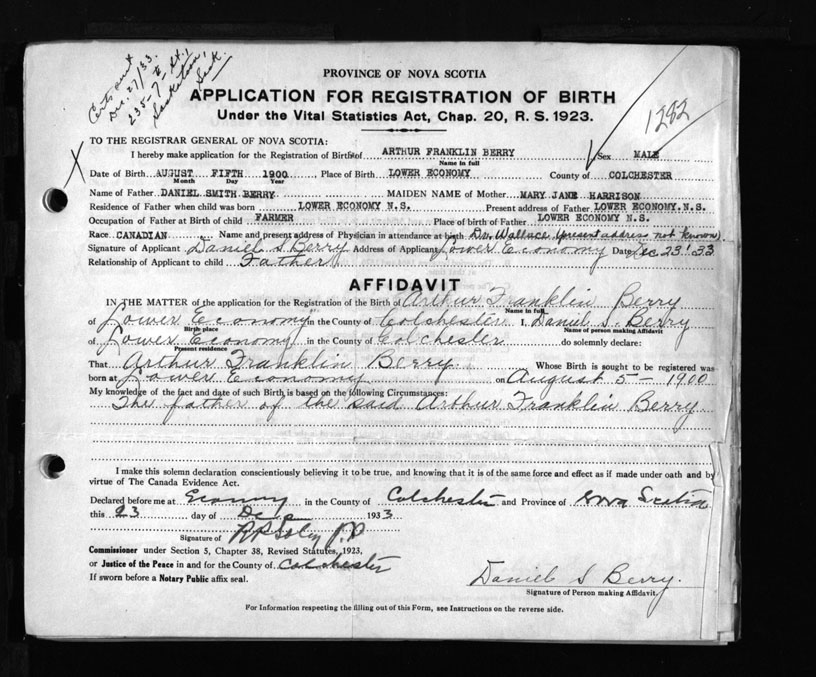 Cert. sent
Dec. 27/33.
235-7-
Saskatoon,
Sask.
1282
PROVINCE OF NOVA SCOTIA
APPLICATION FOR REGISTRATION OF BIRTH
Under the Vital Statistics Act, Chap. 20, R. S. 1923.
TO THE REGISTRAR GENERAL OF NOVA SCOTIA:
I hereby make application for the Registration of Birth of ARTHUR FRANKLIN BERRY Sex MALE
Name in full
Date of Birth AUGUST FIFTH 1900 Place of Birth LOWER ECONOMY County of COLCHESTER
Month Day Year
Name of Father DANIEL SMITH BERRY MAIDEN NAME of Mother MARY JANE HARRISON
Residence of Father when child was born LOWER ECONOMY N.S. Present address of Father LOWER ECONOMY.N.S.
Occupation of Father at Birth of child FARMER Place of birth of Father LOWER ECONOMY N.S.
Race CANADIAN Name and present address of Physician in attendance at birth Dr. Wallace (present address not known)
Signature of Applicant Daniel S. Berry Address of Applicant Lower Economy Date Dec 23 '33
Relationship of Applicant to child Father
AFFIDAVIT
IN THE MATTER of the application for the Registration of the Birth of Arthur Franklin Berry
Name in full
of Lower Economy in the County of Colchester I, Daniel S. Berry
Birth place Name of person making Affidavit
of Lower Economy in the County of Colchester do solemnly declare:
Present residence
That Arthur Franklin Berry Whose Birth is sought to be registered was
born at Lower Economy on August 5 - 1900
My knowledge of the fact and date of such Birth is based on the following Circumstances:
The father of the said Arthur Franklin Berry.
I make this solemn declaration conscientiously believing it to be true, and knowing that it is of the same force and effect as if made under oath and by
virtue of The Canada Evidence Act.
Declared before me at Economy in the County of Colchester and Province of Nova Scotia
this 23 day of Dec 1933
Signature of J.P.
Commissioner under Section 5, Chapter 38, Revised Statutes, 1923,
or Justice of the Peace in and for the County of Colchester
If sworn before a Notary Public affix seal.
Daniel S Berry.
Signature of Person making Affidavit.
For Information respecting the filling out of this Form, see Instructions on the reverse side.